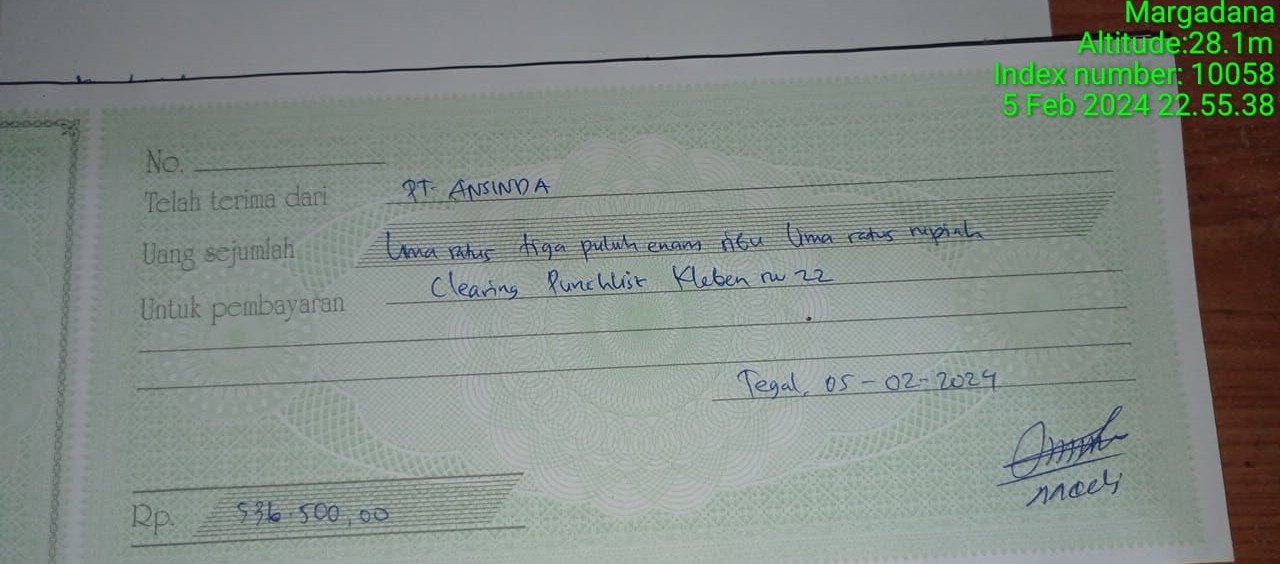 Margadana
Altitude:28.1m
Index number: 10058
5 Feb 2024 22.55.38
No.
Telah terima dari PT. ANSINDA
Uang sejumlah Lima ratus tiga puluh enam ribu lima ratus rupiah
Untuk pembayaran Clearing Punchlist Kleben rw 22
Tegal, 05-02-2024
Rp. 536.500,00